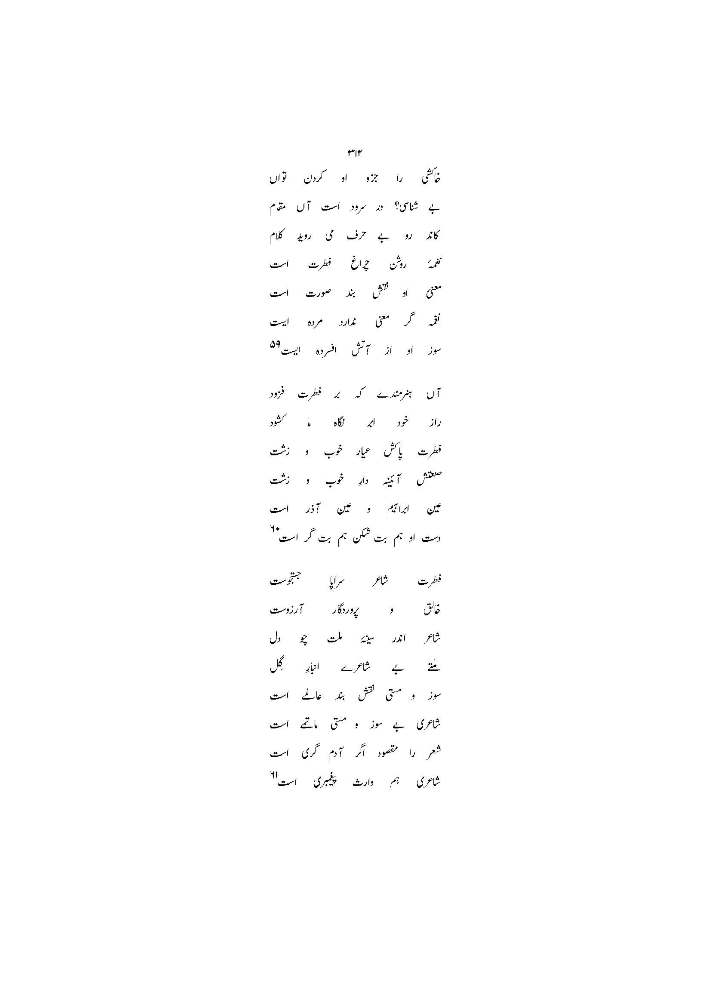 ۳۱۴
خامشی را جزو او کردن تواں
بے شناسی؟ در سرود است آں مقام
کاندرو بے حرف می روید کلام
نغمۂ روشن چراغ فطرت است
معنیِ او نقش بند صورت است
نغمہ گر معنی ندارد مردہ ایست
سوز او از آتش افسردہ ایست۵۹
آں ہنرمندے کہ بر فطرت فزود
راز خود ابر نگاہ ما کشود
فطرت پاکش عیار خوب و زشت
صنعتش آئینہ دار خوب و زشت
عین ابراہیم و عین آذر است
دست او ہم بت شکن ہم بت گر است۶۰
فطرت شاعر سراپا جستجوست
خالق و پروردگار آرزوست
شاعر اندر سینۂ ملت چو دل
ملتے بے شاعرے انبارِ گل
سوز و مستی نقش بند عالمے است
شاعری بے سوز و مستی ماتمے است
شعر را مقصود اگر آدم گری است
شاعری ہم وارث پیغمبری است۶۱